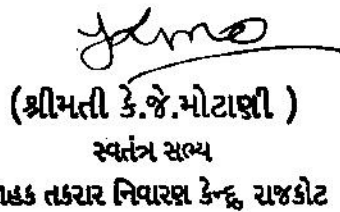 (શ્રીમતી કે.જે.મોટાણી )
સ્વતંત્ર સભ્ય
તકરાર નિવારણ કેન્દ્ર, રાજકોટ